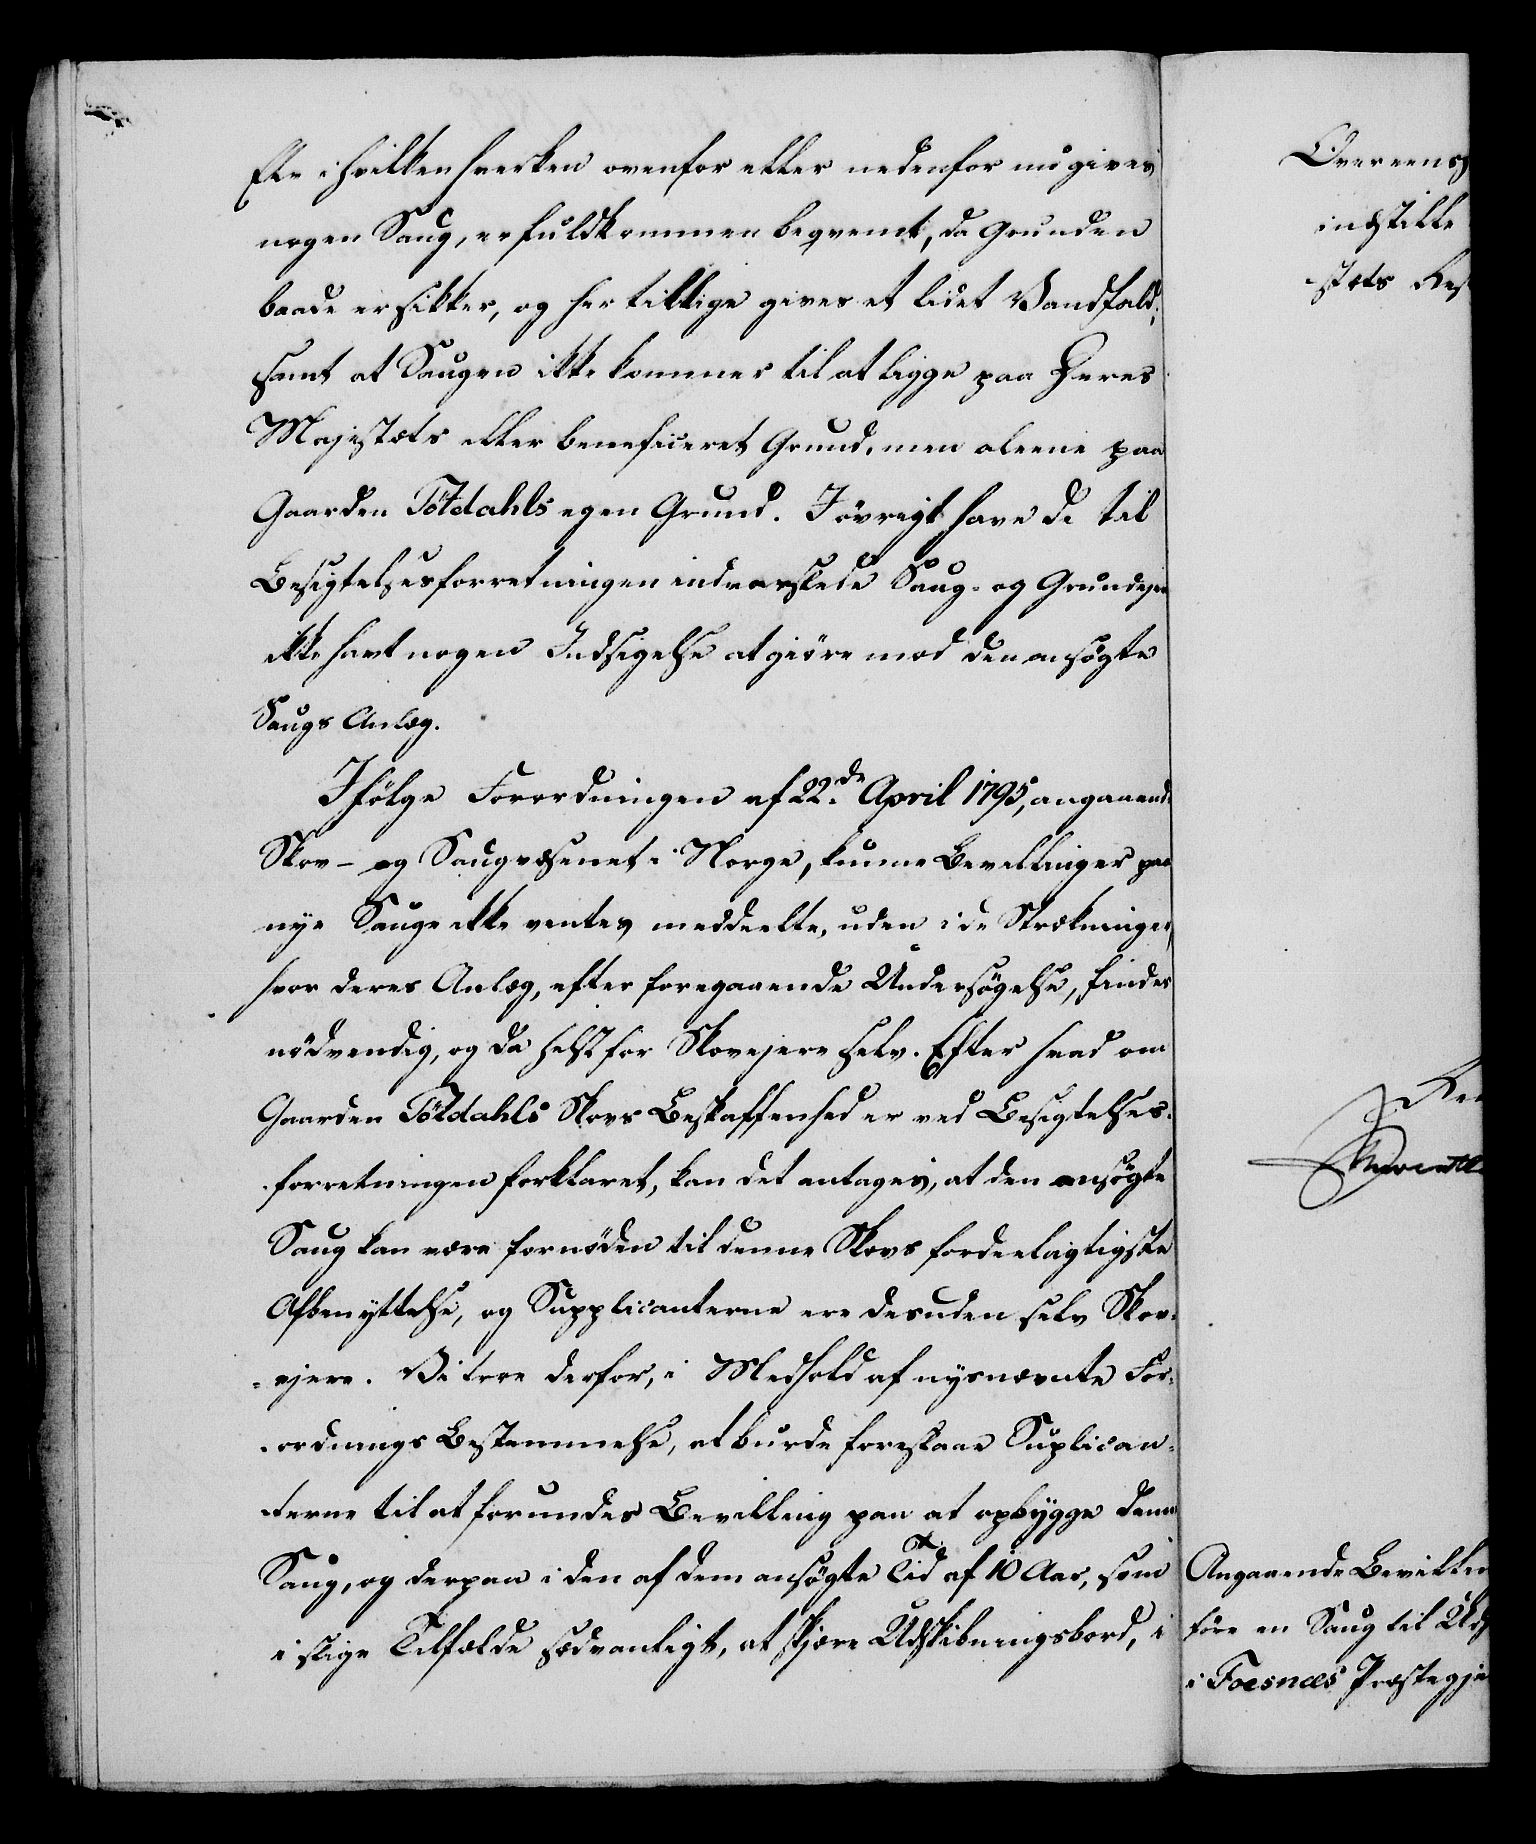 Elv i hvilken hverken ovenfor eller nedenfor nu gives
nogen Saug, er fuldkommen beqvemt, da Grunden
baade er sikker, og her tillige gives et lidet Vandfald;
samt at Saugen ikke kommer til at ligge paa Deres
Majestæts eller beneficeret Grund, men alene paa
Gaarden Tötdahls egen Grund. I övrigt have de til
Besigtelsesforretningen indvarslede Saug- og Grundejere
ikke havt nogen Indsigelse at giöre mod den ansögte
Saugs Anlæg.
Ifölge Forordningen af 22de April 1795, angaaende
Skov- og Saugvæsenet i Norge, kunne Bevillinger paa
nye Sauge ikke ventes meddeelte, uden i de Strækninger,
hvor deres Anlæg, efter foregaaende Undersögelse, findes
nödvendig, og da helst for Skovejere selv. Efter hvad om
Gaarden Tötdahls Skovs Beskaffenhed er ved Besigtelses-
forretningen forklaret, kan det antages, at den ansögte
Saug kan være fornöden til denne Skovs fordeelagtigste
Afbenyttelse, og Supplicanterne ere desuden selv Skov-
ejere. Vi troe derfor, i Medhold af nysnævnte For-
ordnings Bestemmelse, at burde foreslaae Suplican-
terne til at forundes Bevilling paa at opbygge denne
Saug, og derpaa i den af dem ansögte Tid af 10 Aar, som
i slige Tilfælde sædvanligt, at skjære Udskibningsbord, i
Overeens
indstille
stæts Res
Ren
Angaaende Bevillin
före en Saug til Uds
i Foesnæs Præstegje